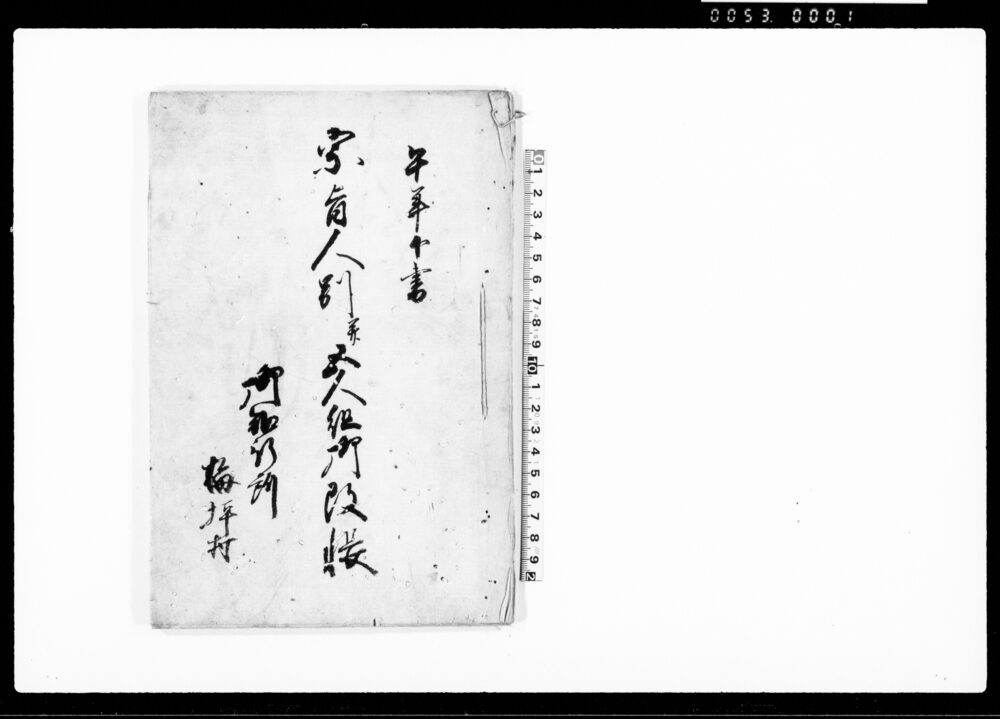 0053. 0001
午年下書
宗旨人別并五人組御改帳
御知行所
梅坪村
0 1 2 3 4 5 6 7 8 9 10 1 2 3 4 5 6 7 8 9 2